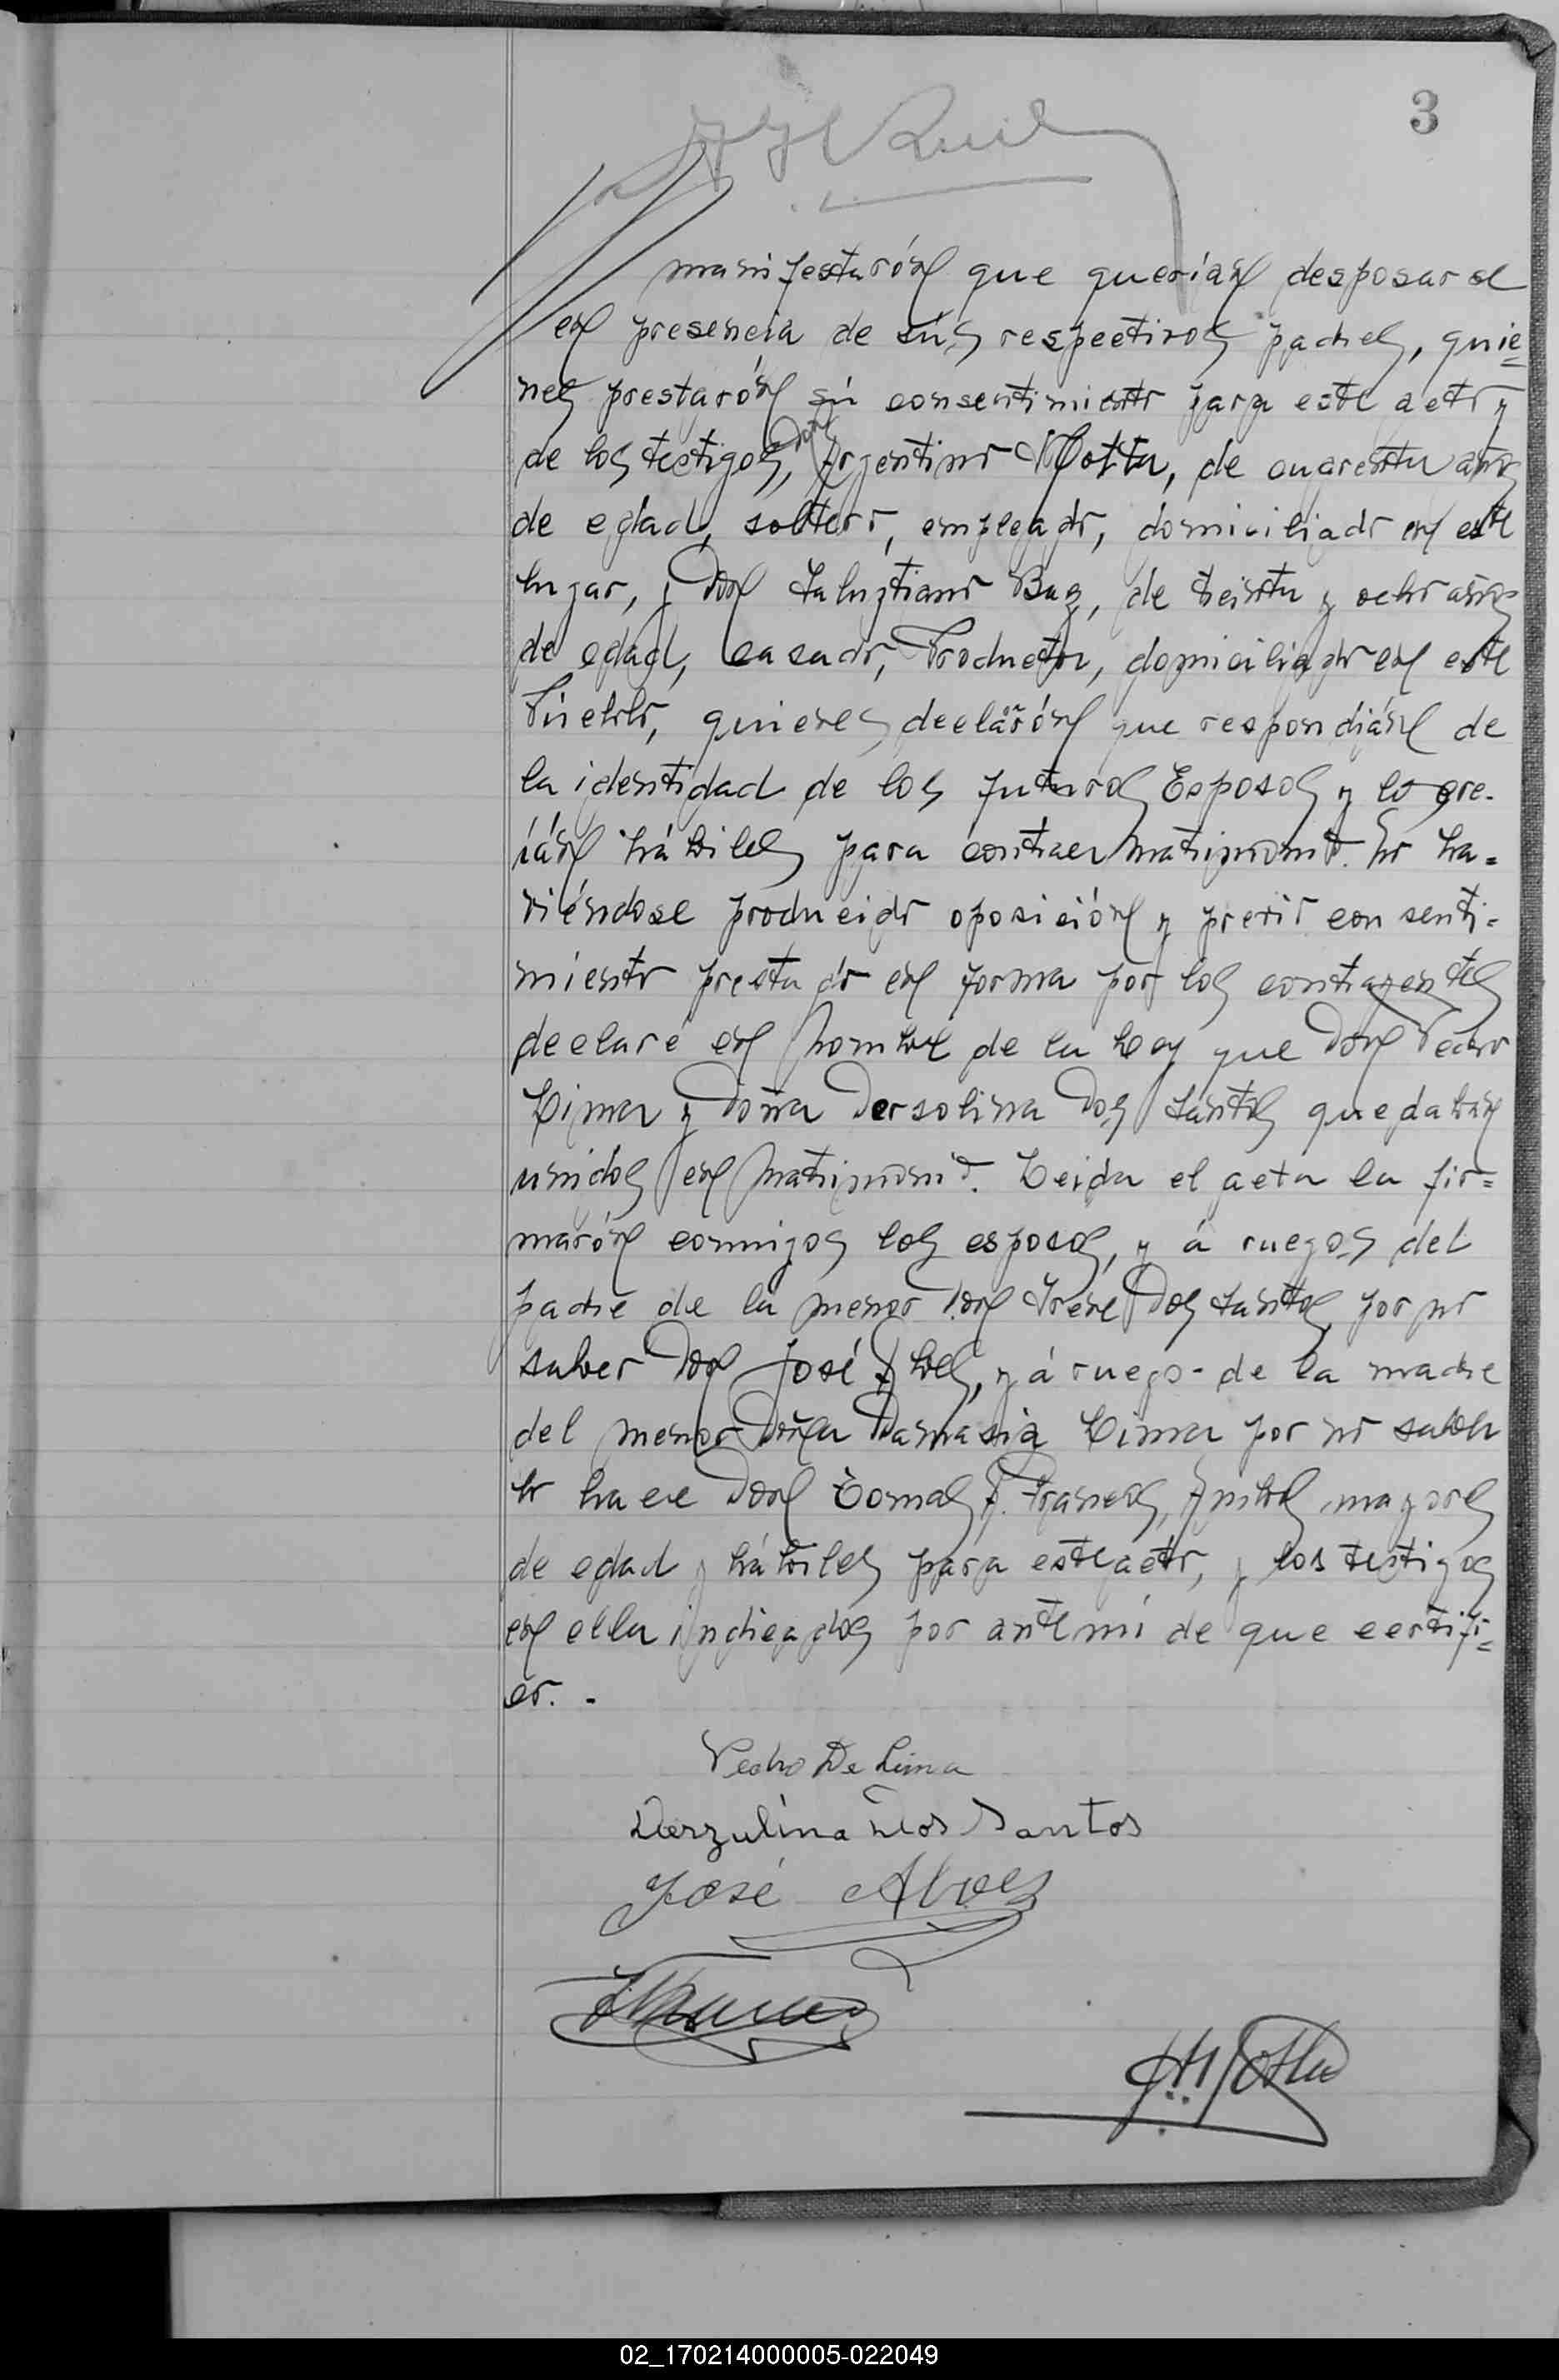 3
manifestarón que querían desposarse
en presencia de sús respectivos padres, quie=
nes prestarón sú consentimiento para este acto y
de los testigos, don Argentino Motta, de cuarenta años
de edad, soltero, empleado, domiciliado en este
lugar, y Don Saluztiano Baez, de treinta y ocho años
de edad, casado, Productor, domiciliado en este
Púeblo, quienes declarón que respondián de
la identidad de los futuros Esposos y lo cre-
ián hábiles para contraer matrimonio. No ha=
viéndose producido oposición y previo consenti=
miento prestado en forma por los contrayentes
declaré en nombre de la Ley que Don Pedro
Lima y doña Dersolina Dos Santos quedaban
unidos en matrimonio. Leida el acta la fir=
marón conmigos los esposos, y á ruegos del
padre de la menor Don Irene Dos Santos, por no
saber Don José Alves, y á ruego- de la madre
del menor Doña Damasia Lima por no saber
lo hace Don Tomas F. Franco, ambos mayores
de edad y hábiles para este acto, y los testigos
en ella indicados por ante mí de que certifi=
co. -
Pedro De Lima
Derzulina Dos Santos
José Alves
02_170214000005-022049